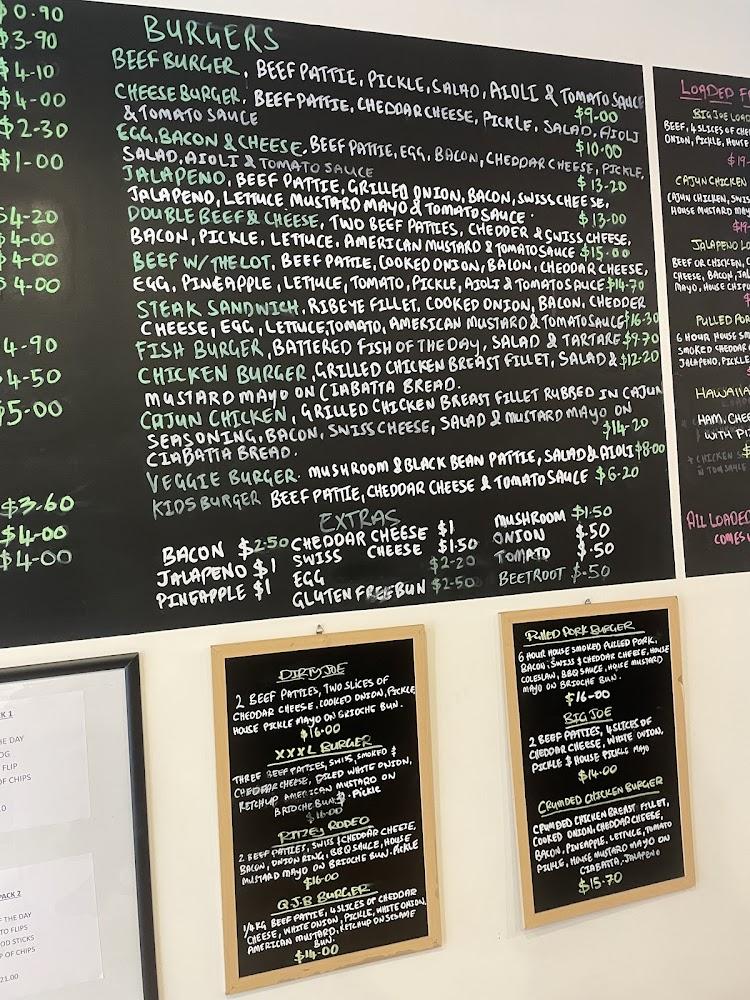 $0.90
$3-90
$4-10
$4-00
$2-30
$1-00
$4-20
$4-00
$4-00
$4-00
4-90
4-50
$5-00
$3.60
$4-00
$4-00
BURGERS
BEEF BURGER, BEEF PATTIE, PICKLE, SALAD, AIOLI & TOMATO SAUCE
$9-00
CHEESE BURGER, BEEF PATTIE, CHEDDAR CHEESE, PICKLE, SALAD, AIOLI
& TOMATO SAUCE $10-00
EGG, BACON & CHEESE, BEEF PATTIE, EGG, BACON, CHEDDAR CHEESE, PICKLE,
SALAD, AIOLI & TOMATO SAUCE $13-20
JALAPENO, BEEF PATTIE, GRILLED ONION, BACON, SWISS CHEESE,
JALAPENO, LETTUCE MUSTARD MAYO & TOMATO SAUCE. $13-00
DOUBLE BEEF & CHEESE, TWO BEEF PATTIES, CHEDDER & SWISS CHEESE,
BACON, PICKLE, LETTUCE, AMERICAN MUSTARD & TOMATO SAUCE $15-00
BEEF W/ THE LOT, BEEF PATTIE, COOKED ONION, BACON, CHEDDAR CHEESE,
EGG, PINEAPPLE, LETTUCE, TOMATO, PICKLE, AIOLI & TOMATO SAUCE $14-70
STEAK SANDWICH, RIBEYE FILLET, COOKED ONION, BACON, CHEDDER
CHEESE, EGG, LETTUCE, TOMATO, AMERICAN MUSTARD & TOMATO SAUCE $16-30
FISH BURGER, BATTERED FISH OF THE DAY, SALAD & TARTARE $9-70
CHICKEN BURGER, GRILLED CHICKEN BREAST FILLET, SALAD & $12-20
MUSTARD MAYO ON CIABATTA BREAD.
CAJUN CHICKEN, GRILLED CHICKEN BREAST FILLET RUBBED IN CAJUN
SEASONING, BACON, SWISS CHEESE, SALAD & MUSTARD MAYO ON
CIABATTA BREAD. $14-20
VEGGIE BURGER. MUSHROOM & BLACK BEAN PATTIE, SALAD & AIOLI $8-00
KIDS BURGER BEEF PATTIE, CHEDDAR CHEESE & TOMATO SAUCE $6-20
EXTRAS
BACON $2-50
JALAPENO $1
PINEAPPLE $1
CHEDDAR CHEESE $1
SWISS CHEESE $1-50
EGG $2-20
GLUTEN FREE BUN $2-50
MUSHROOM $1-50
ONION $.50
TOMATO $.50
BEETROOT $.50
LOADED
BIG JOE LOAD
BEEF, 4 SLICES OF CHE
ONION, PICKLE, HOUSE
$19-
CAJUN CHICKEN
CAJUN CHICKEN, SWIS
HOUSE MUSTARD MA
$19-
JALAPENO LO
BEEF OR CHICKEN, C
CHEESE, BACON, JAL
MAYO, HOUSE CHIPO
PULLED POR
6 HOUR HOUSE SM
SMOKED CHEDDAR
JALAPENO, PICKLE
HAWAIIA
HAM, CHEE
WITH PI
ALL LOADED
COMES W
DIRTY JOE
2 BEEF PATTIES, TWO SLICES OF
CHEDDAR CHEESE, COOKED ONION, PICKLE
HOUSE PICKLE MAYO ON BRIOCHE BUN.
$16-00
XXXL BURGER
THREE BEEF PATTIES, SWISS, SMOKED &
CHEDDAR CHEESE, DICED WHITE ONION,
KETCHUP AMERICAN MUSTARD ON
BRIOCHE BUN. PICKLE
$16-00
RITZEY RODEO
2 BEEF PATTIES, SWISS & CHEDDAR CHEESE,
BACON, ONION RING, BBQ SAUCE, HOUSE
MUSTARD MAYO ON BRIOCHE BUN. PICKLE
$16-00
Q.J.B BURGER
1/4 KG BEEF PATTIE, 4 SLICES OF CHEDDAR
CHEESE, WHITE ONION, PICKLE, WHITE ONION,
AMERICAN MUSTARD, KETCHUP ON SESAME
BUN.
$14-00
PULLED PORK BURGER
6 HOUR HOUSE SMOKED PULLED PORK,
BACON, SWISS & CHEDDAR CHEESE, HOUSE
COLESLAW, BBQ SAUCE, HOUSE MUSTARD
MAYO ON BRIOCHE BUN.
$16-00
BIG JOE
2 BEEF PATTIES, 4 SLICES OF
CHEDDAR CHEESE, WHITE ONION,
PICKLE & HOUSE PICKLE MAYO
$14.00
CRUMBED CHICKEN BURGER
CRUMBED CHICKEN BREAST FILLET,
COOKED ONION, CHEDDAR CHEESE,
BACON, PINEAPPLE, LETTUCE, TOMATO
PICKLE, HOUSE MUSTARD MAYO ON
CIABATTA, JALAPENO
$15-70
CK 1
HE DAY
OG
FLIP
OF CHIPS
PACK 2
F THE DAY
TO FLIPS
OD STICKS
P OF CHIPS
21.00